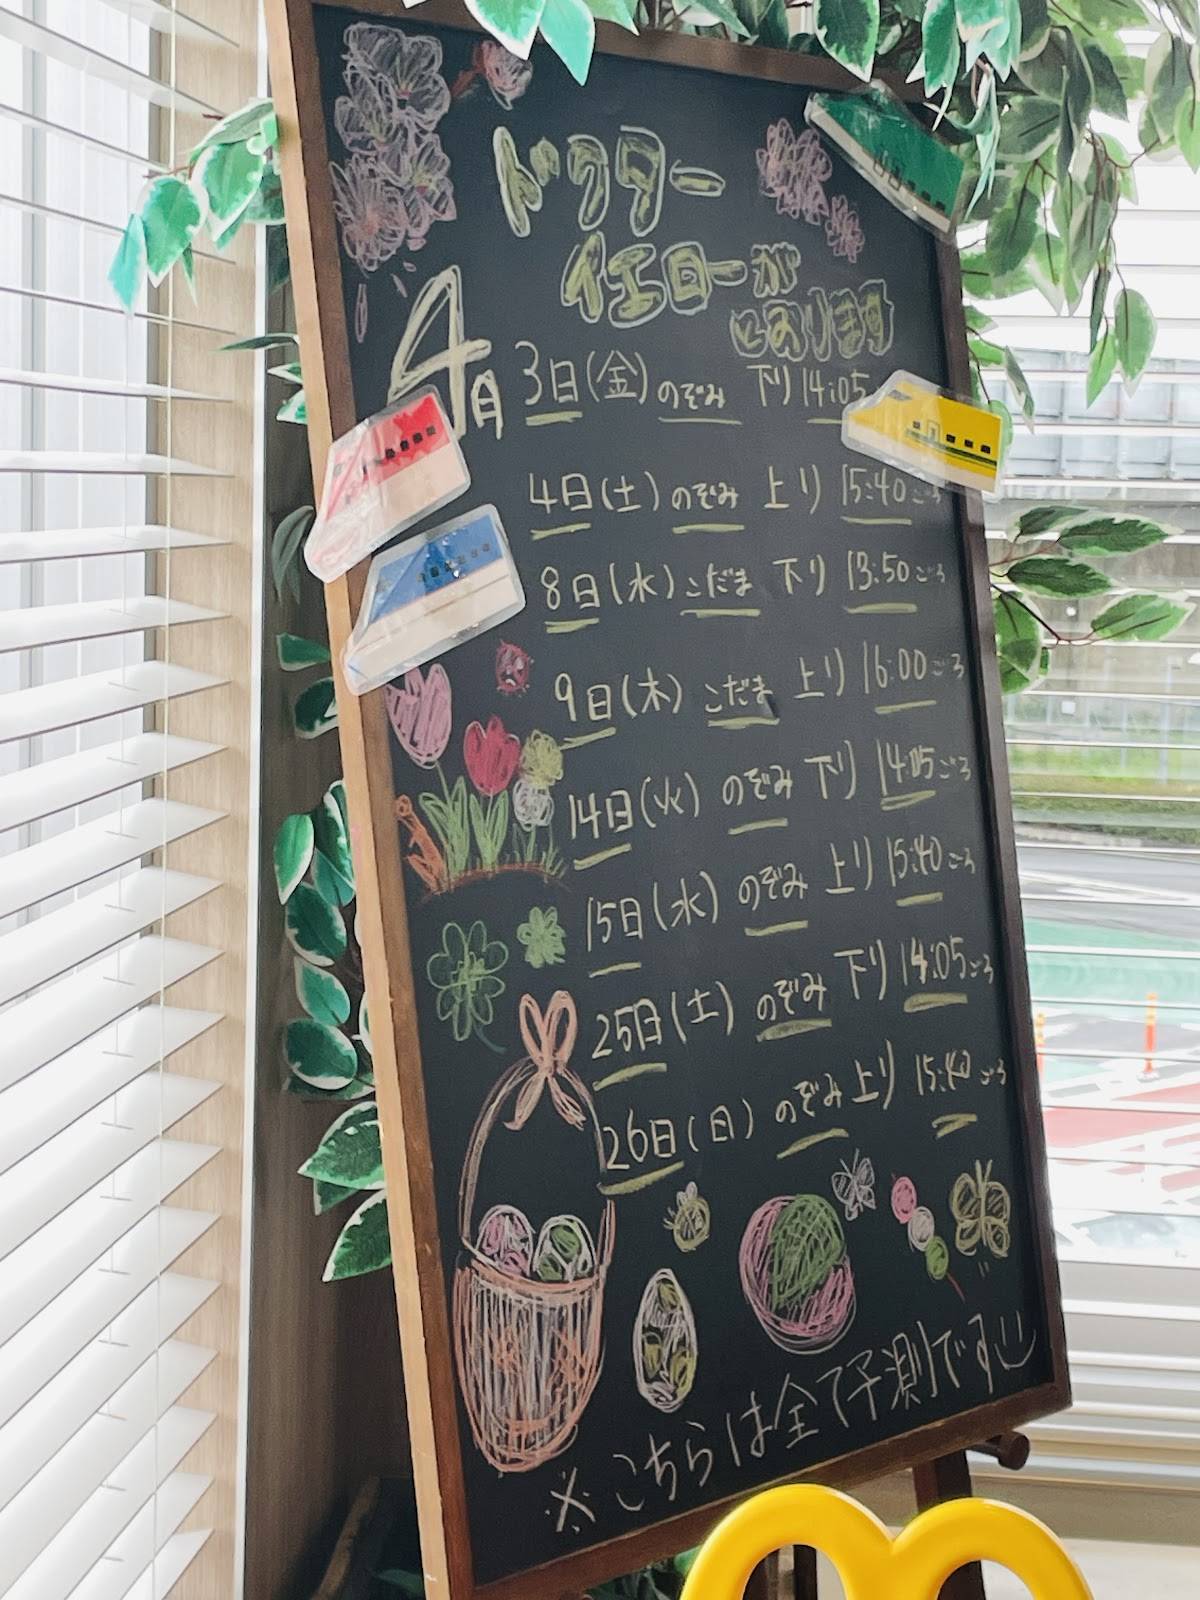 ドクター
イエローが
とおります
4月
3日(金) のぞみ 下り 14:05
4日(土) のぞみ 上り 15:40ごろ
8日(水) こだま 下り 13:50ごろ
9日(木) こだま 上り 16:00ごろ
14日(火) のぞみ 下り 14:05ごろ
15日(水) のぞみ 上り 15:40ごろ
25日(土) のぞみ 下り 14:05ごろ
26日(日) のぞみ 上り 15:40ごろ
※こちらは全て予測です